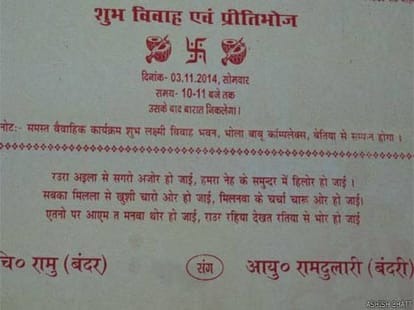 शुभ विवाह एवं प्रीतिभोज
दिनांक- 03.11.2014, सोमवार
समय- 10-11 बजे तक
उसके बाद बारात निकलेगा।
नोटः- समस्त वैवाहिक कार्यक्रम शुभ लक्ष्मी विवाह भवन, भोला बाबु कॉम्पलेक्स, बेतिया से सम्पन्न होगा।
रउरा अइला से सगरो अजोर हो जाई, हमरा नेह के समुन्दर में हिलोर हो जाई ।
सबका मिलला से खुशी चारो ओर हो जाई, मिलनवा के चर्चा चारू ओर हो जाई।
एतनो पर आएम त मनवा थोर हो जाई, राउर रहिया देखत रतिया से भोर हो जाई
चि० रामु (बंदर) संग आयु० रामदुलारी (बंदरी)
ASHISH BHATT